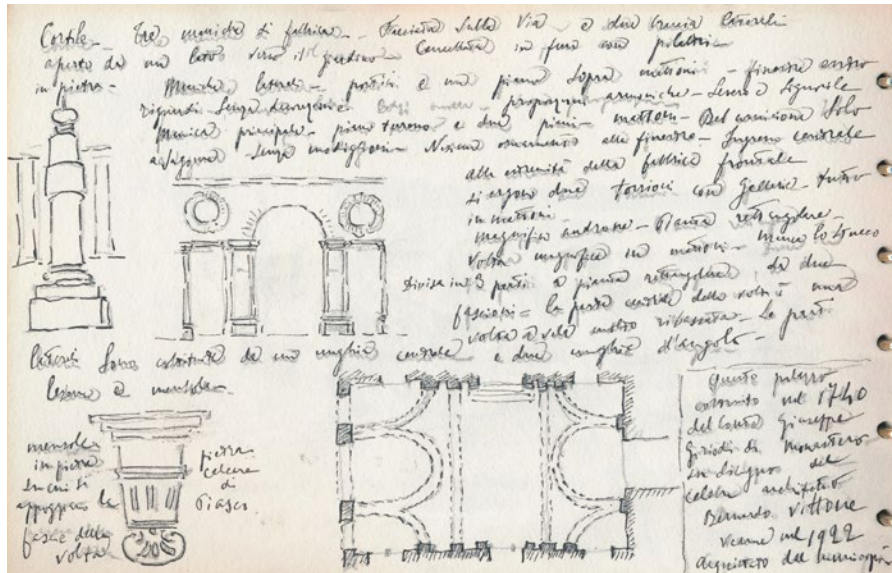 Cortile - Tre maniche di fabbrica - Facciata sulla Via - e due braccia laterali
aperto da un lato verso il giardino - Cancellata in ferro con pilastri
in pietra - Maniche laterali - portici e un piano sopra mattoni - finestre entro
riquadri senza decorazioni - proporzioni armoniche - Severo e Signorile
Manica principale - piano terreno e due piani - mattoni - Del cornicione solo
senza modiglioni - Nessun ornamento alle finestre - Ingresso centrale
alle estremità della fabbrica frontale
si ergono due torrioni con gallerie - tutto
in mattoni -
Magnifico androne - Pianta rettangolare -
Volta magnifica in mattoni - manca lo stucco
Divisa in 3 parti a pianta rettangolare, da due
fascioni - la parte centrale della volta è una
volta a vela molto ribassata - Le parti
laterali sono costituite da un unghia centrale e due unghie d'angolo -
lesene e mensole -
mensole
in pietra
su cui si
appoggiano le
fasce della
volta
pietra
calcarea
di
Piasco
Questo palazzo
costruito nel 1740
dal Conte Giuseppe
Giriodi di Monastero
su disegno del
celebre architetto
Bernardo Vittone
venne nel 1922
acquistato dal municipio